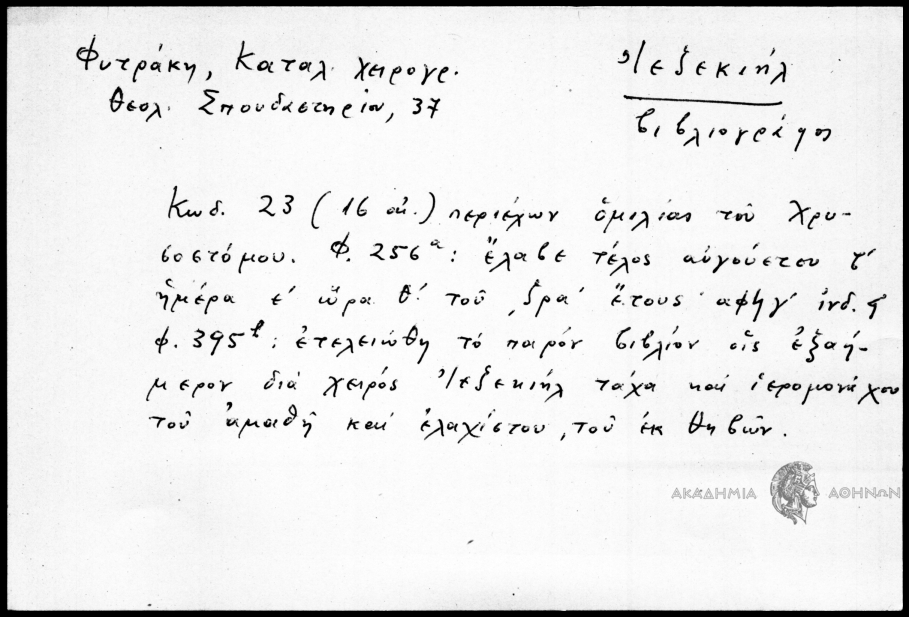 Φυτράκη, Καταλ. χειρογρ.
Θεολ. Σπουδαστηρίου, 37
Ἰεζεκιήλ
βιβλιογράφος
Κωδ. 23 (16 αἰ.) περιέχων ὁμιλίας τοῦ Χρυ-
σοστόμου. Φ. 256α: ἔλαβε τέλος αὐγούστου τ'
ἡμέρα ε' ὥρα θ' τοῦ ͵ζρα' ἔτους αφϟγ' ἰνδ. ϛ
φ. 395β: ἐτελειώθη τό παρόν βιβλίον εἰς ἑξαή-
μερον διά χειρός Ἰεζεκιήλ τάχα καί ἱερομονάχου
τοῦ ἀμαθῆ καί ἐλαχίστου, τοῦ ἐκ Θηβῶν.
ΑΚΑΔΗΜΙΑ ΑΘΗΝΩΝ